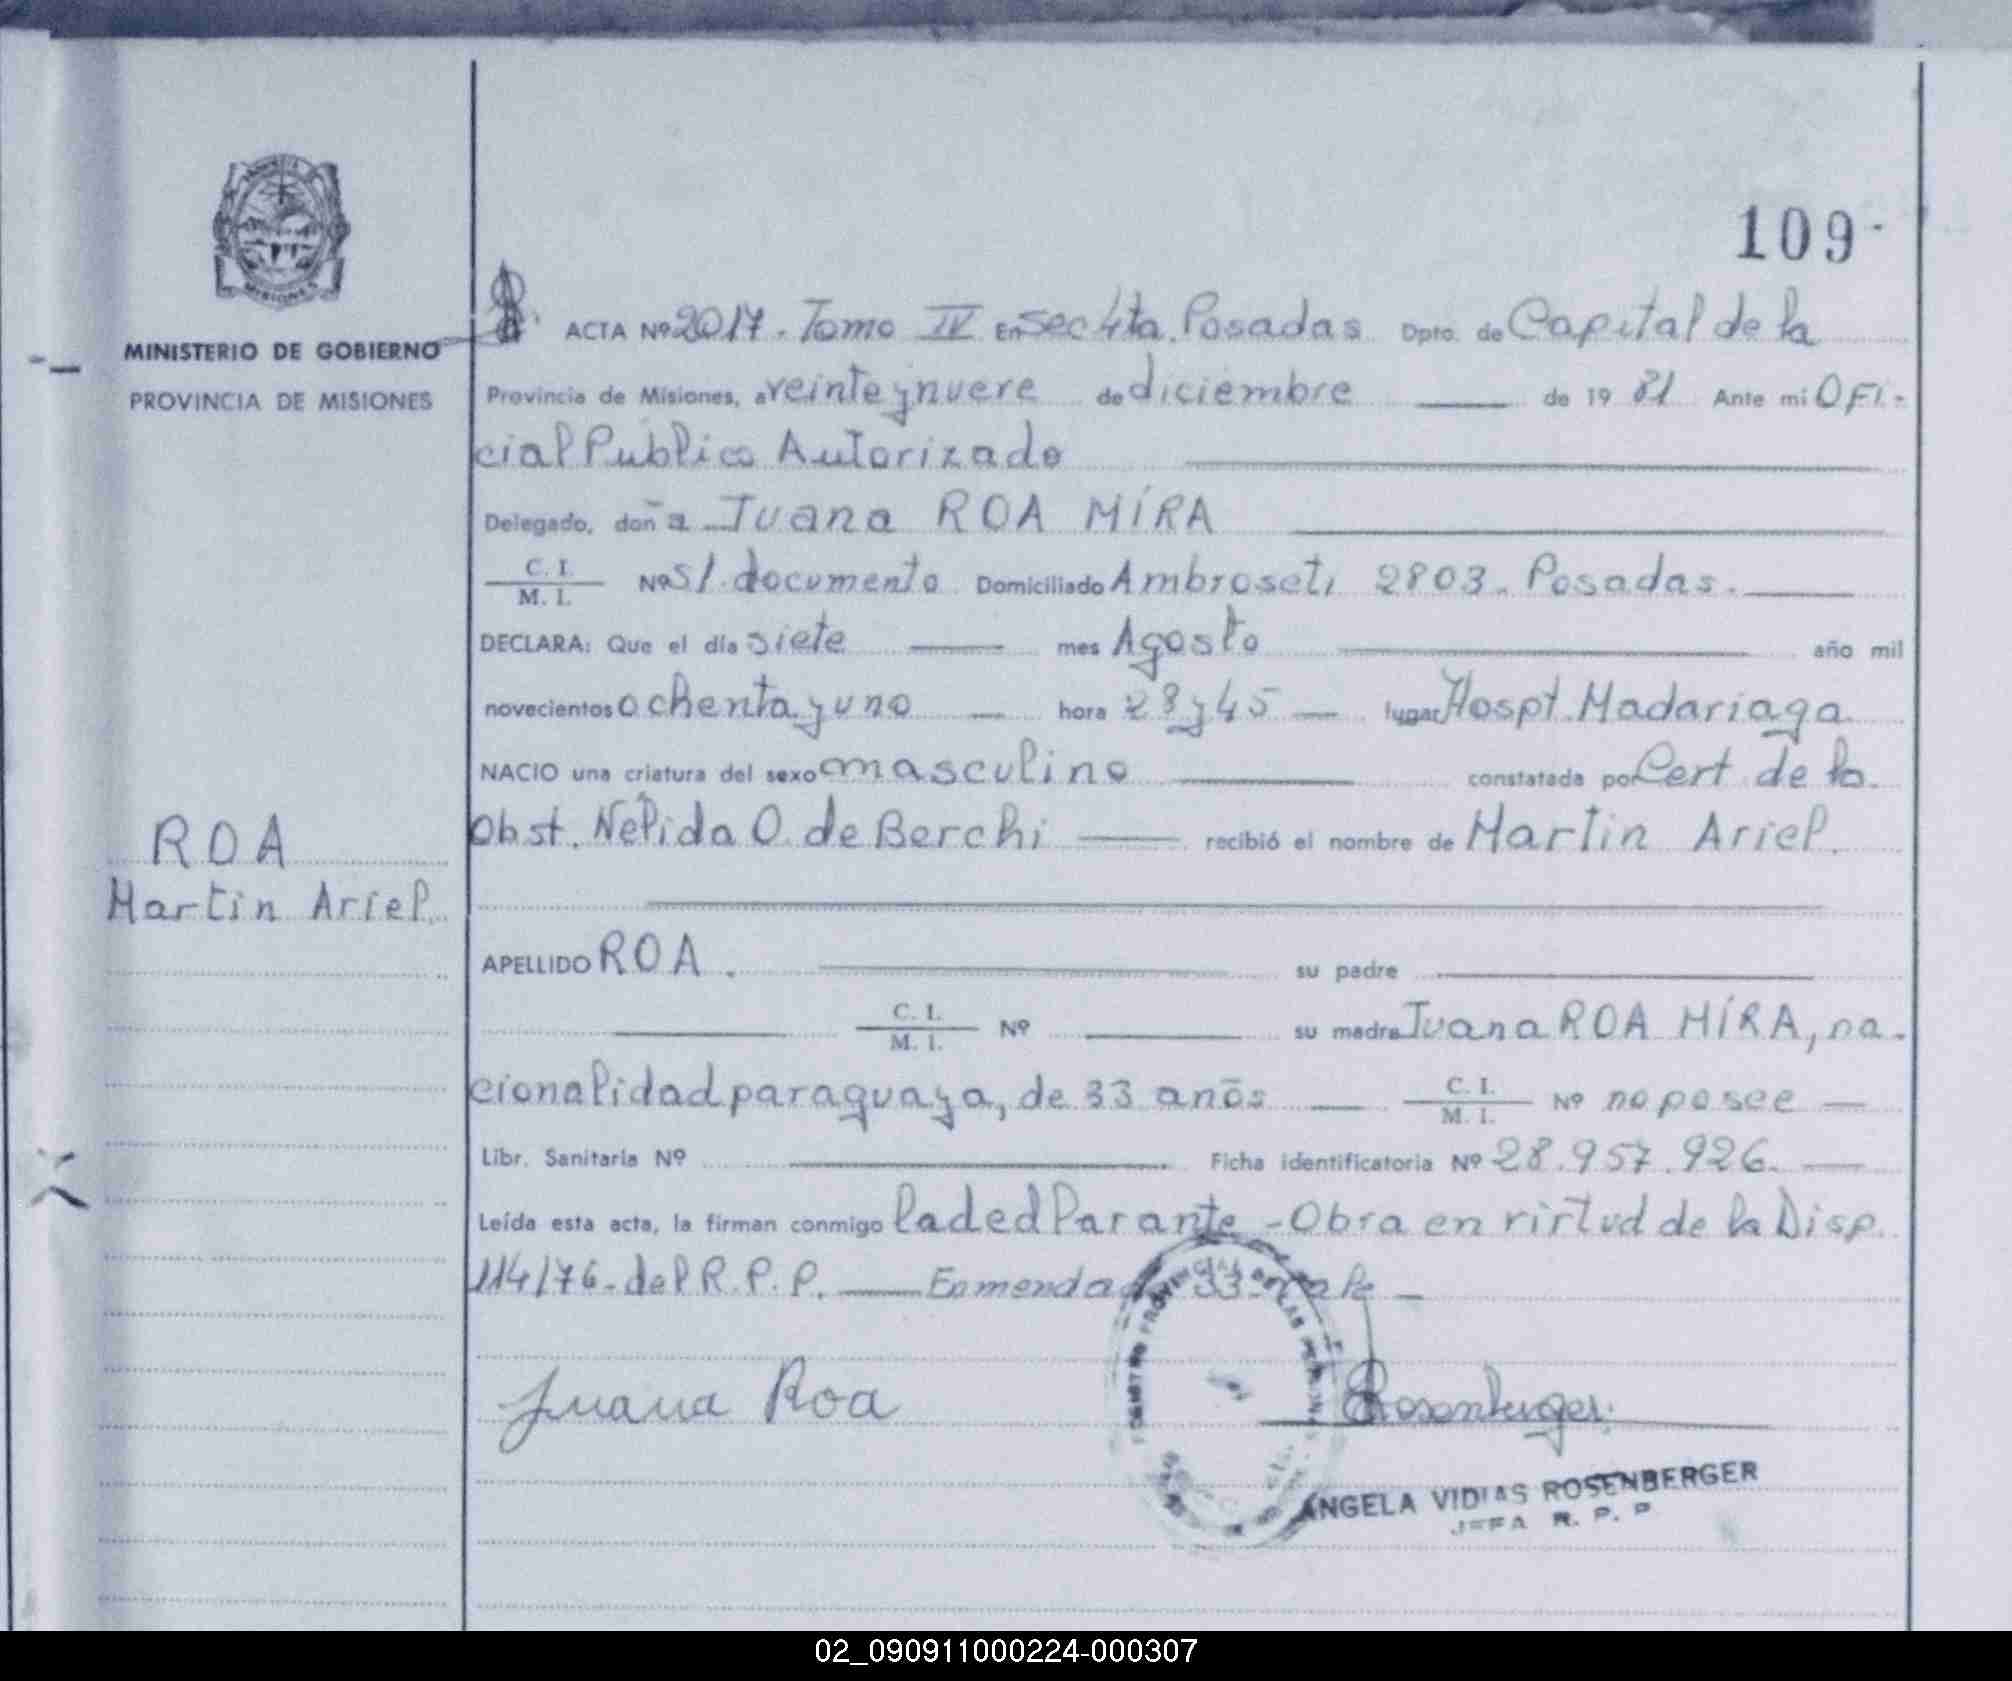 MISIONES
109-
MINISTERIO DE GOBIERNO
PROVINCIA DE MISIONES
ACTA Nº 2017. Tomo IV En Sec 4ta. Posadas Dpto. de Capital de la
Provincia de Misiones, a veinte y nueve de diciembre de 19 81 Ante mi Ofi-
cial Publico Autorizado
Delegado, doña Juana ROA MÍRA
C. I.
M. I. Nº s/. documento Domiciliado Ambroseti 2803. Posadas.
DECLARA: Que el día siete mes Agosto año mil
novecientos ochenta y uno hora 23 y 45 lugar Hospt. Madariaga
NACIO una criatura del sexo masculino constatada por Cert de la
Obst. Nélida O. de Berchi recibió el nombre de Martin Ariel.
ROA
Martin Ariel.
APELLIDO ROA. su padre
C. I.
M. I. Nº su madre Juana ROA MÍRA, na-
cionalidad paraguaya, de 33 años C. I.
M. I. Nº no posee
Libr. Sanitaria Nº Ficha identificatoria Nº 28.957.926.
Leída esta acta, la firman conmigo la declarante - Obra en virtud de la Disp.
114/76. del R.P.P. Enmendado 33 vale
Juana Roa Rosenberger
ANGELA VIDIAS ROSENBERGER
JEFA R. P. P
02_090911000224-000307